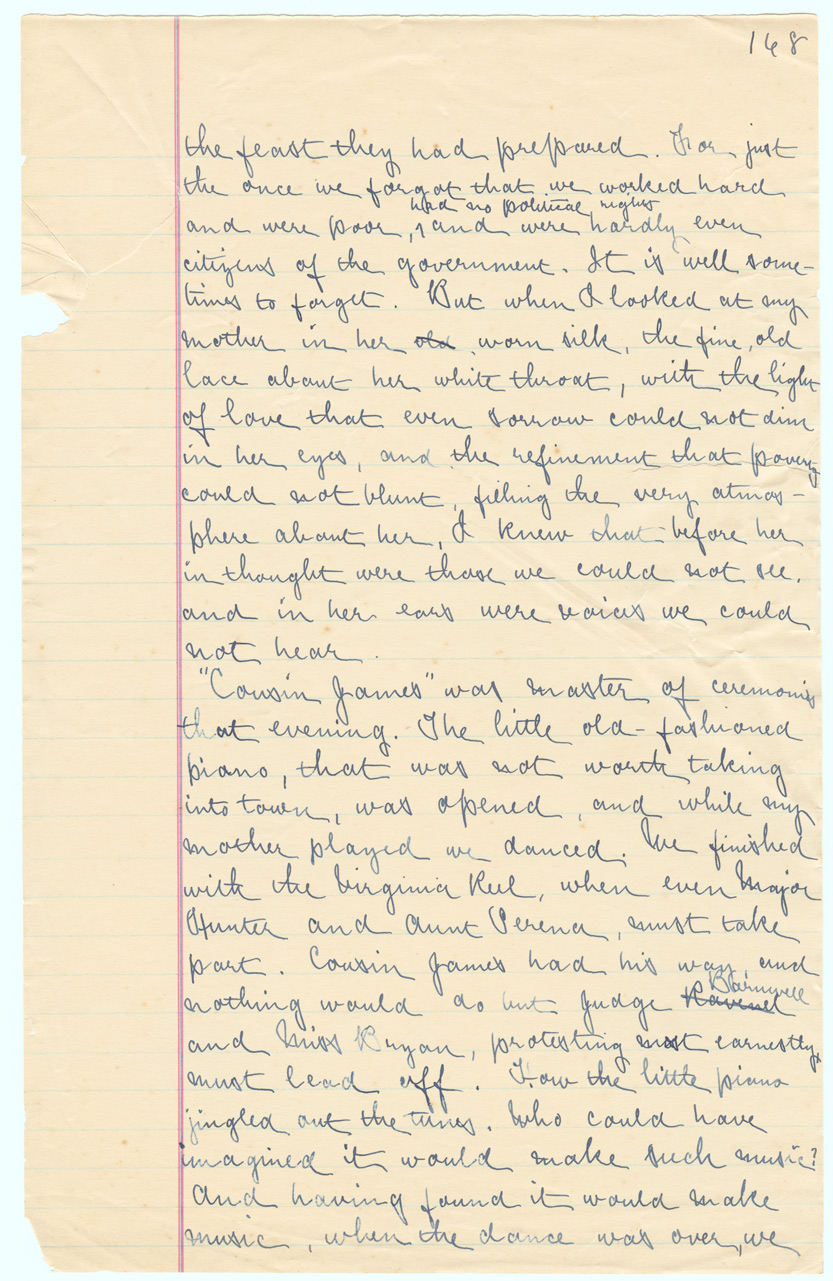 168
the feast they had prepared. For just
the once we forgot that we worked hard
had no political rights
and were poor, and were hardly even
citizens of the government. It is well some-
times to forget. But when I looked at my
mother in her old worn silk, the fine, old
lace about her white throat, with the light
of love that even sorrow could not dim
in her eyes, and the refinement that poverty
could not blunt, filling the very atmos-
phere about her, I knew that before her
in thought were those we could not see,
and in her ears were voices we could
not hear.
"Cousin James" was master of ceremonies
that evening. The little old-fashioned
piano, that was not worth taking
into town, was opened, and while my
mother played we danced. We finished
with the Virginia Reel, when even Major
Hunter and Aunt Serena, must take
part. Cousin James had his way, and
Barnwell
nothing would do but Judge Ravenel
and Miss Bryan, protesting most earnestly,
must lead off. How the little piano
jingled out the tunes. Who could have
imagined it would make such music?
And having found it would make
music, when the dance was over, we